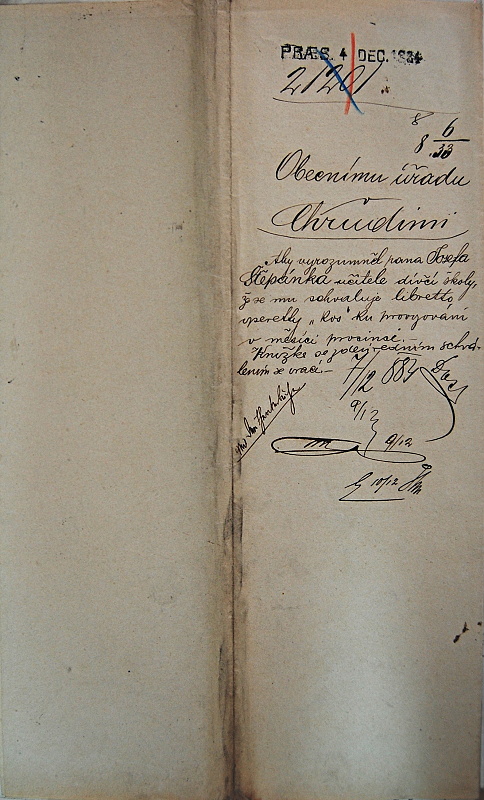 PRÆS. 4 DEC. 1884
21201
8 6
8 33
Obecnímu úřadu
Chrudimi
Aby vyrozuměl pana Josefa
Štěpánka učitele dívčí školy,
že se mu schvaluje libretto
operetty „Kos“ ku provozování
v měsíci prosinci.
Knížka se zdejj úředním schvá-
lením se vrací.
7/12 883
9/12
9/12
10/12